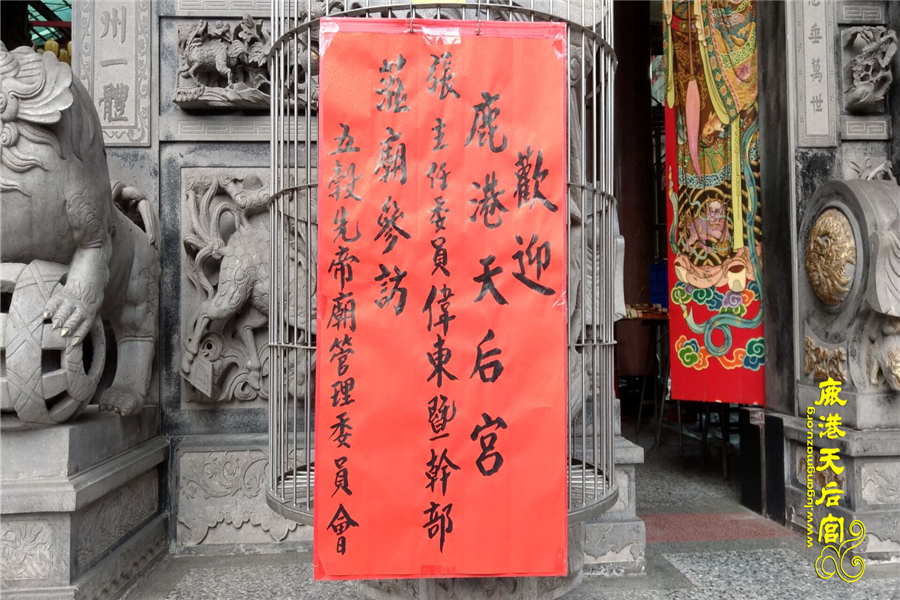 歡迎
鹿港天后宮
張主任委員偉東暨幹部
蒞廟參訪
五穀先帝廟管理委員會
州一體
垂萬世
鹿港天后宮
www.lugangmazu.org